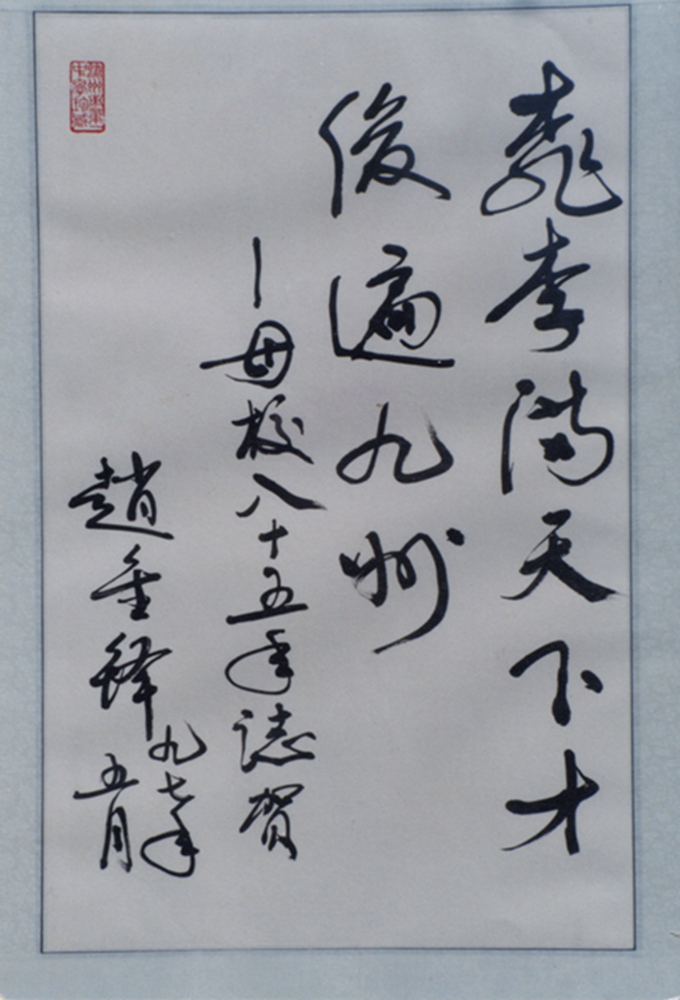 桃李滿天下才
俊遍九州
—母校八十五年誌賀
趙金鐸
九七年
五月